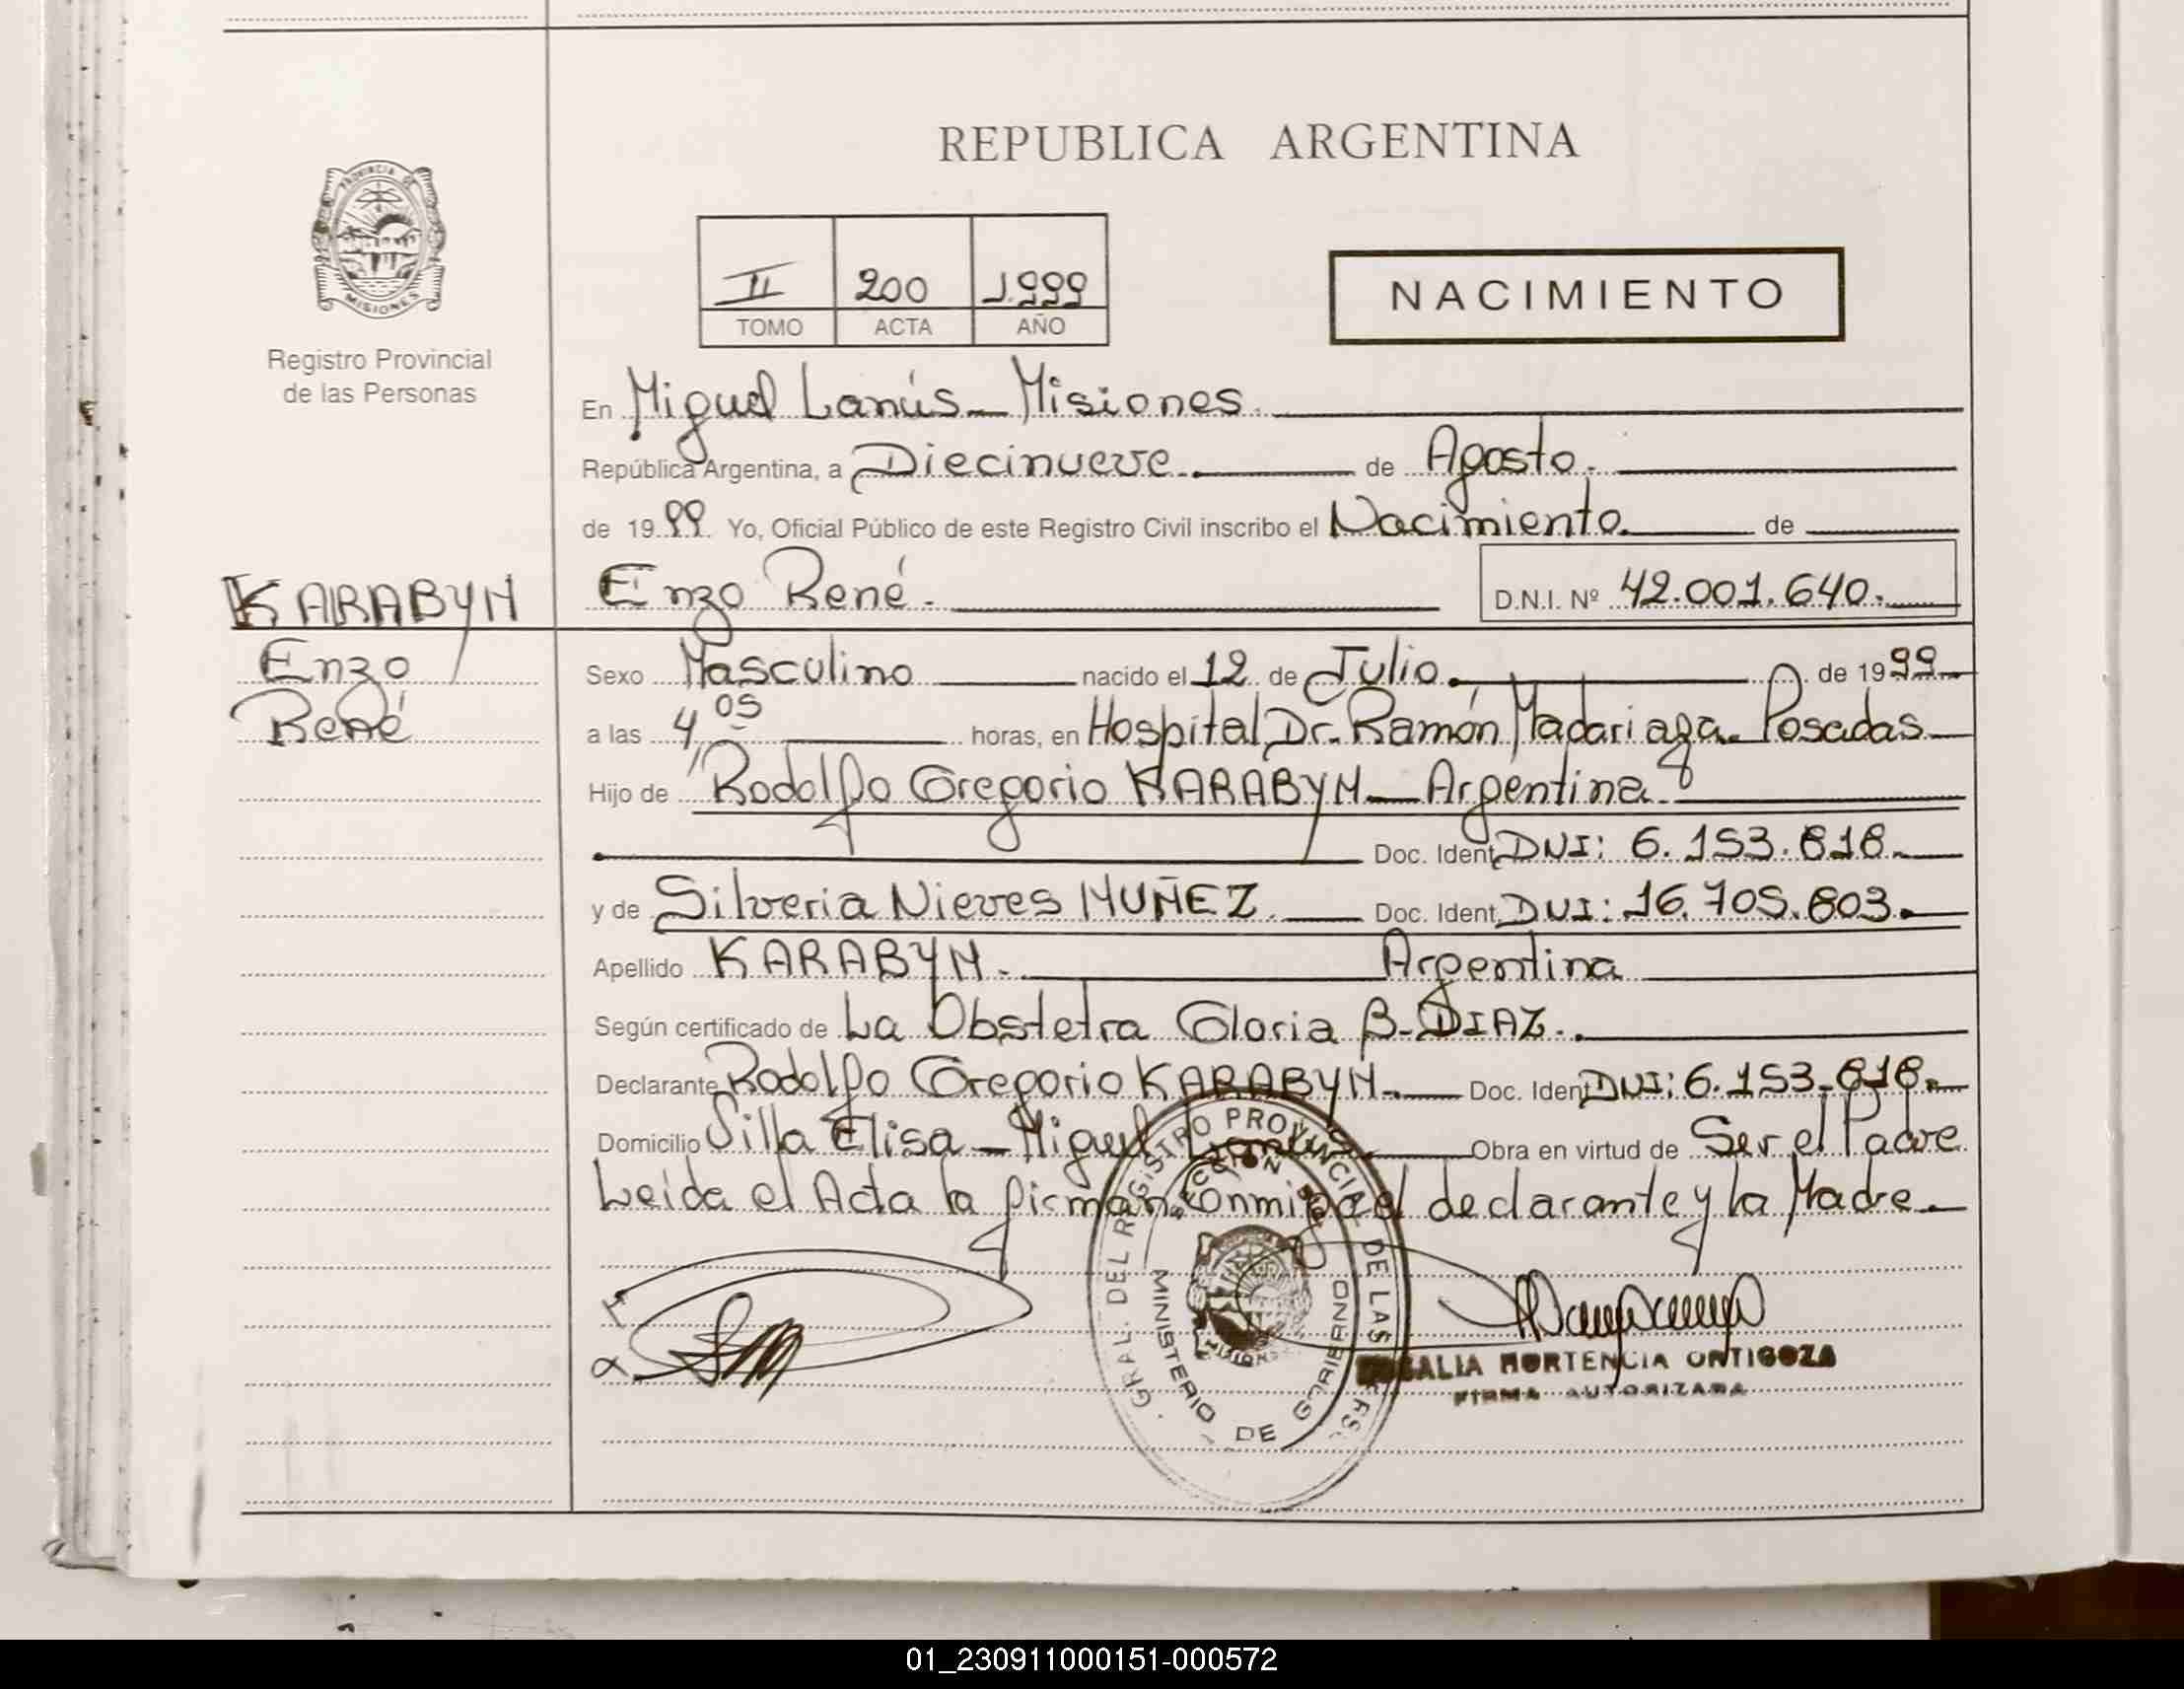 REPUBLICA ARGENTINA
PROVINCIA DE
MISIONES
Registro Provincial
de las Personas
II 200 1.999
TOMO ACTA AÑO
NACIMIENTO
En Miguel Lanús - Misiones.
República Argentina, a Diecinueve. de Agosto.
de 1999. Yo, Oficial Público de este Registro Civil inscribo el Nacimiento. de
KARABYN
Enzo
René
Enzo René. D.N.I. Nº 42.001.640.
Sexo Masculino nacido el 12 de Julio. de 1999
a las 4,05 horas, en Hospital Dr. Ramón Madariaga. Posadas
Hijo de Rodolfo Gregorio KARABYN - Argentina
Doc. Ident. DNI: 6.153.818.
y de Silveria Nieves NUÑEZ. Doc. Ident. DNI: 16.705.803.
Apellido KARABYN. Argentina
Según certificado de La Obstetra Gloria B. DIAZ.
Declarante Rodolfo Gregorio KARABYN. Doc. Ident. DNI: 6.153.818.
Domicilio Villa Elisa - Miguel Lanús. Obra en virtud de Ser el Padre
Leida el Acta la firman conmigo el declarante y la Madre.
GRAL. DEL REGISTRO PROVINCIAL DE LAS
MINISTERIO DE GOBIERNO
HORTENCIA ORTIGOZA
FIRMA AUTORIZADA
01_230911000151-000572